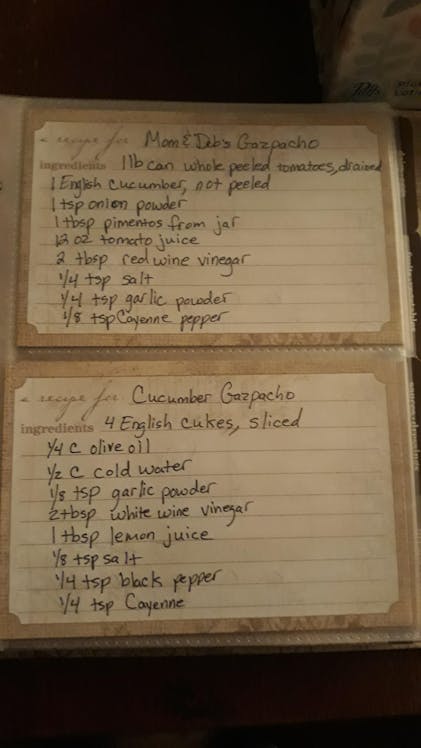 a recipe for Mom & Deb's Gazpacho
ingredients 1 lb can whole peeled tomatoes, drained
1 English cucumber, not peeled
1 tsp onion powder
1 tbsp pimentos from jar
12 oz tomato juice
2 tbsp red wine vinegar
1/4 tsp salt
1/4 tsp garlic powder
1/8 tsp Cayenne pepper
a recipe for Cucumber Gazpacho
ingredients 4 English cukes, sliced
1/4 C olive oil
1/2 C cold water
1/8 tsp garlic powder
2 tbsp white wine vinegar
1 tbsp lemon juice
1/8 tsp salt
1/4 tsp black pepper
1/4 tsp Cayenne